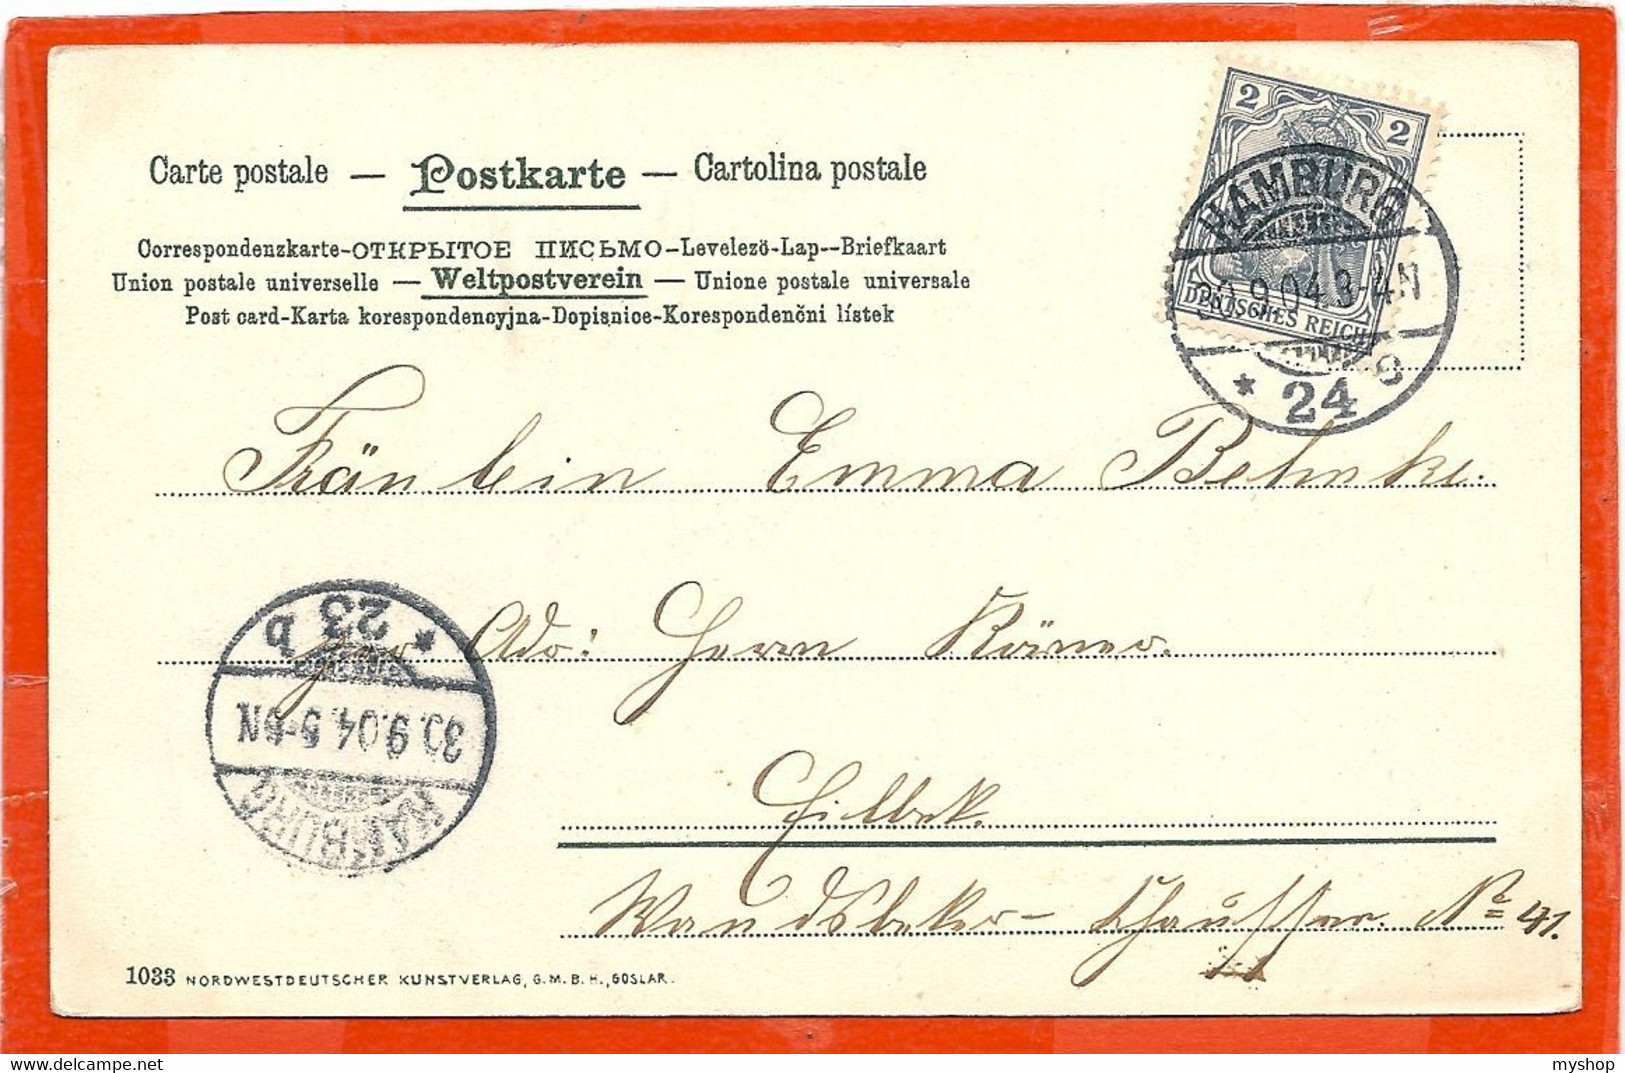 Carte postale — Postkarte — Cartolina postale
Correspondenzkarte-ОТКРЫТОЕ ПИСЬМО-Levelezö-Lap--Briefkaart
Union postale universelle — Weltpostverein — Unione postale universale
Post card-Karta korespondencyjna-Dopisnice-Korespondenčni lístek
2 2
DEUTSCHES REICH
HAMBURG
30.9.04 3-4N
* 24
Fräulein Emma Behnke.
per Adr: Herrn Römer.
Eilbek.
Wandsbeker-Chaussee. No 41.
HAMBURG
30.9.04 5-6N
* 23 b
1033 NORDWESTDEUTSCHER KUNSTVERLAG, G.M.B.H., GOSLAR.
myshop